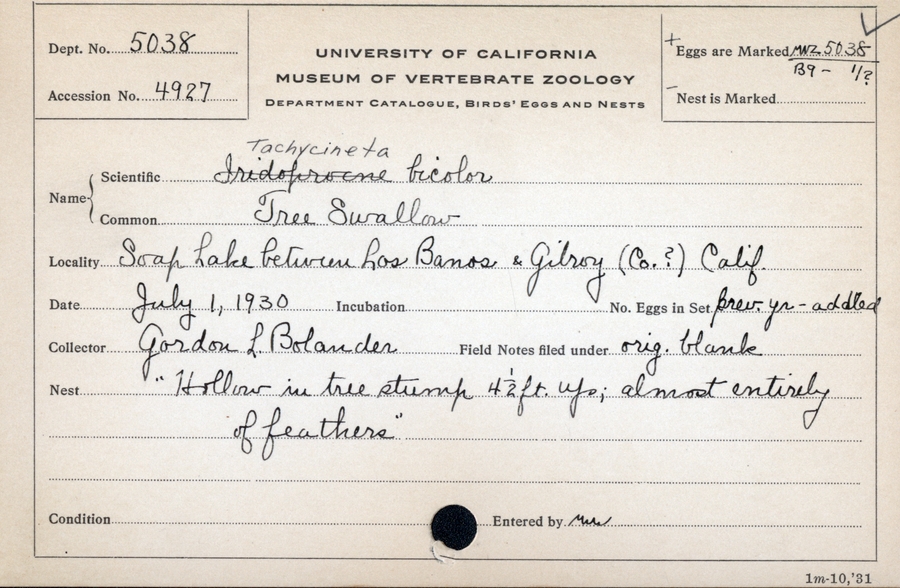 Dept. No. 5038
Accession No. 4927
UNIVERSITY OF CALIFORNIA
MUSEUM OF VERTEBRATE ZOOLOGY
DEPARTMENT CATALOGUE, BIRDS' EGGS AND NESTS
+ Eggs are Marked MVZ 5038
B9 - 1/?
- Nest is Marked
Tachycineta
Name Scientific Iridoprocne bicolor
Common Tree Swallow
Locality Soap Lake between Los Banos & Gilroy (Co.?) Calif.
Date July 1, 1930 Incubation No. Eggs in Set prev. yr - addled
Collector Gordon L. Bolander Field Notes filed under orig. blank
Nest "Hollow in tree stump 4½ ft. up; almost entirely
of feathers"
Condition Entered by
1m-10,'31